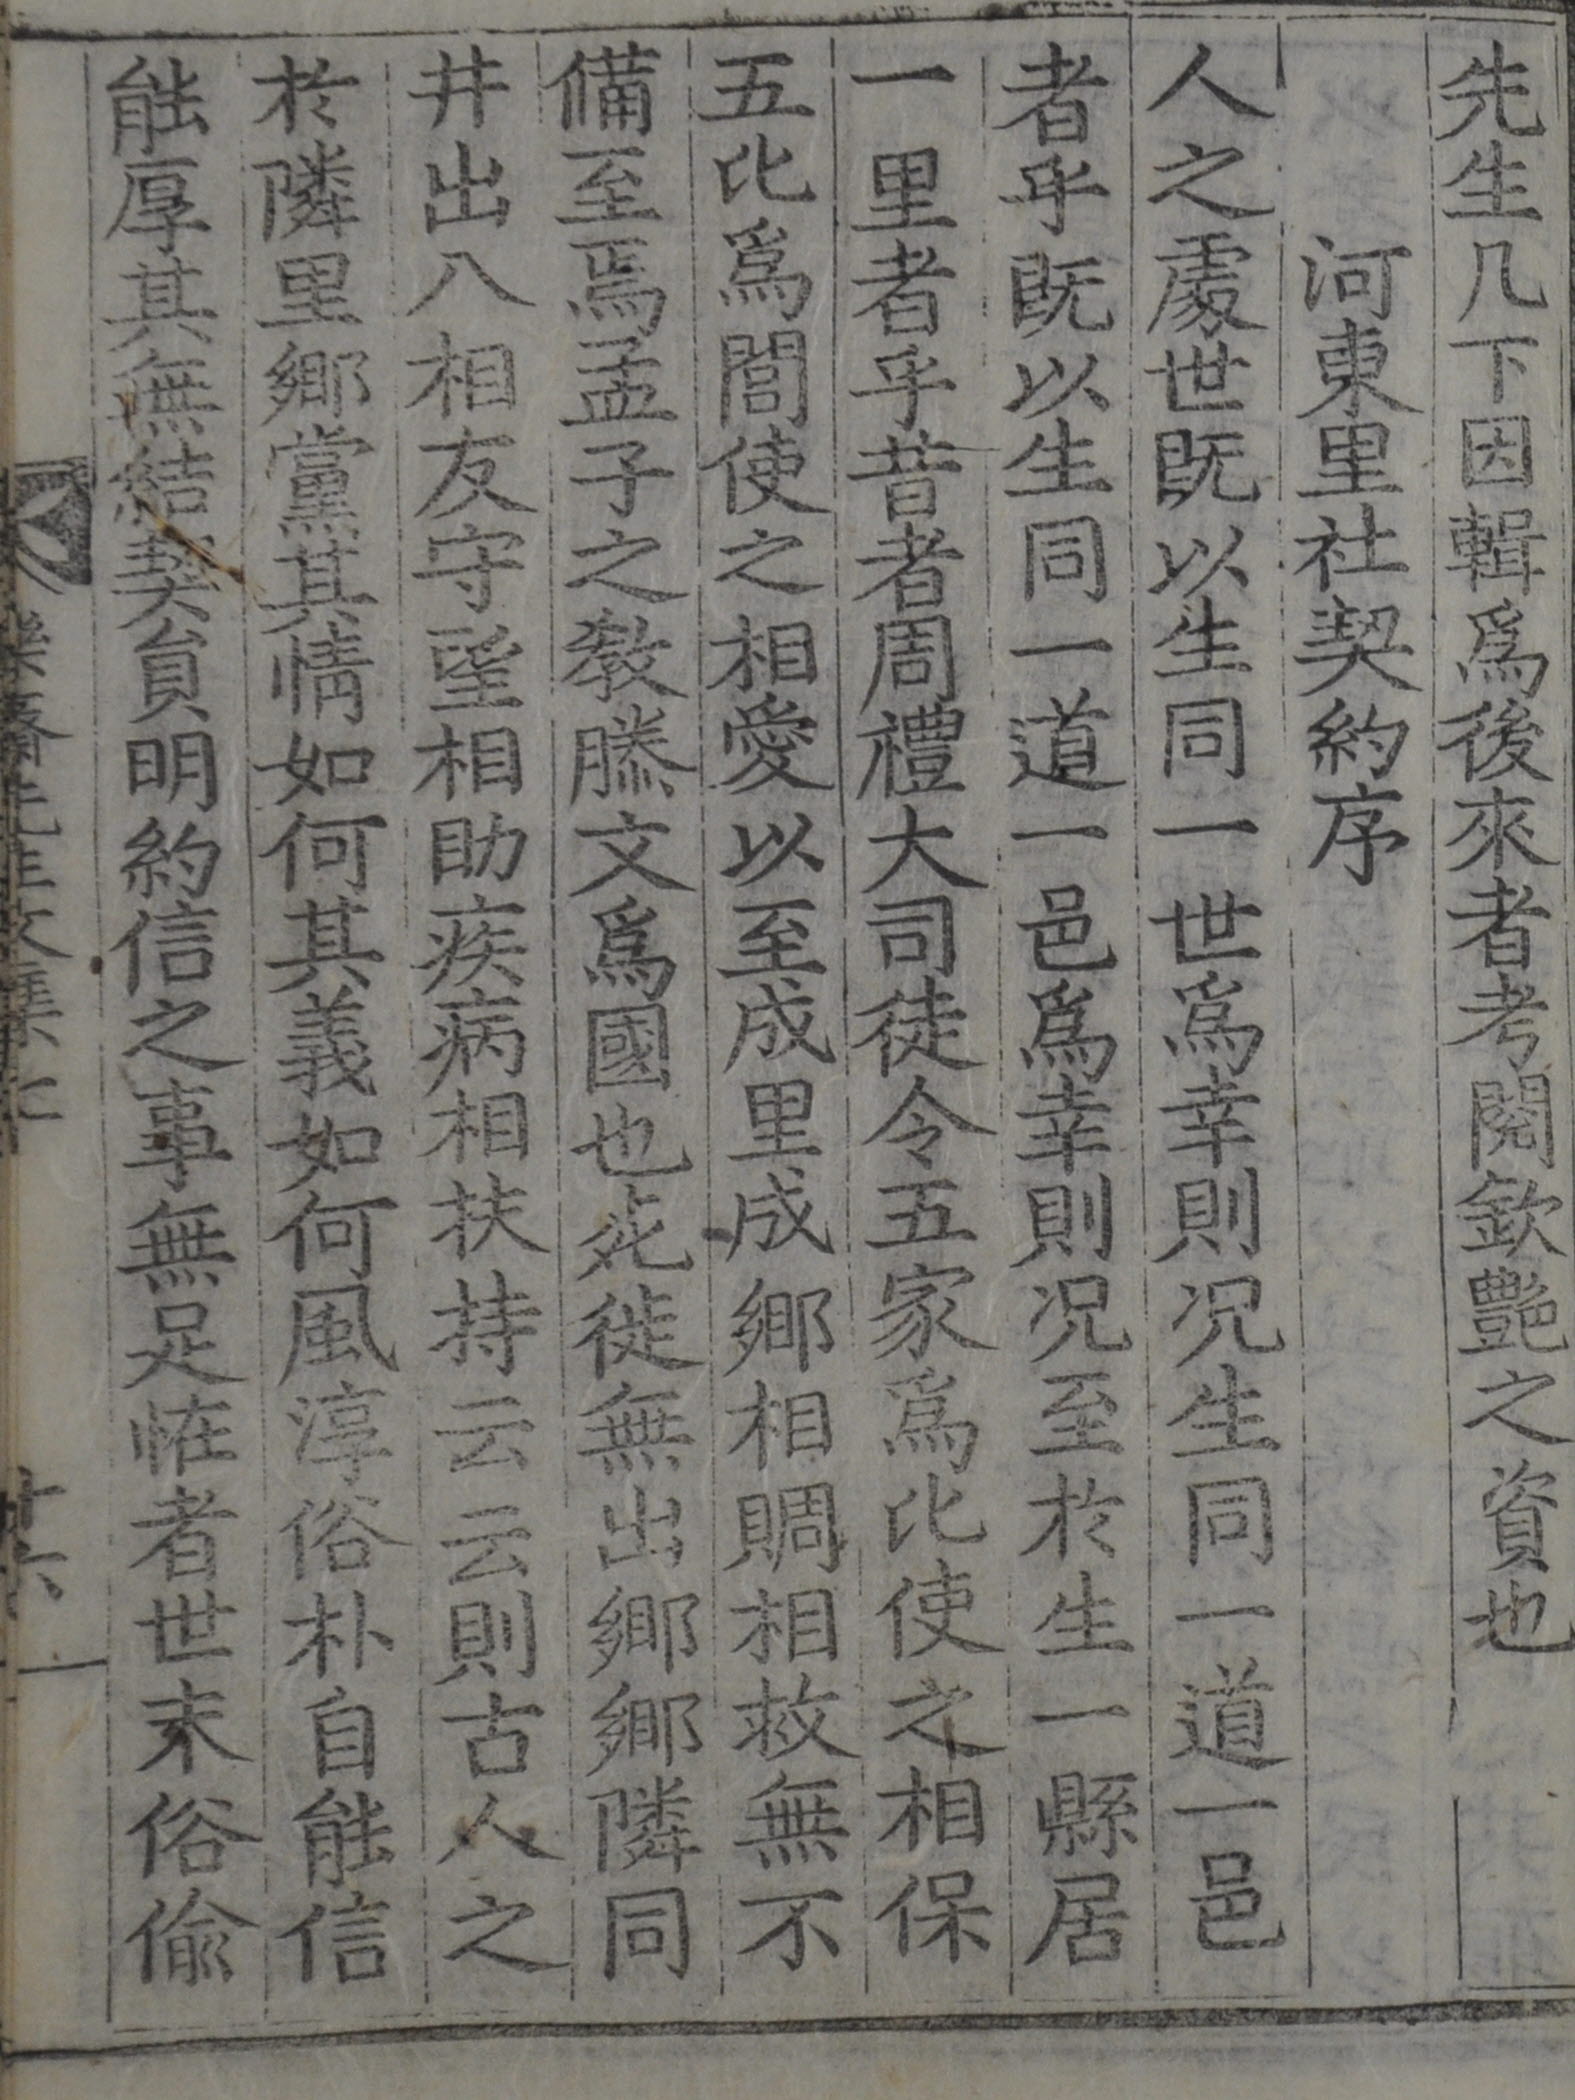 先生几下因輯爲後來者考閱欽艶之資也
河東里社契約序
人之處世既以生同一世爲幸則况生同一道一邑
者乎既以生同一道一邑爲幸則况至於生一縣居
一里者乎昔者周禮大司徒令五家爲比使之相保
五比爲閭使之相愛以至成里成鄉相賙相救無不
備至焉孟子之敎滕文爲國也死徙無出鄉鄉隣同
井出入相友守望相助疾病相扶持云云則古人之
於隣里鄉黨其情如何其義如何風淳俗朴自能信
能厚其無結契員明約信之事無足恠者世末俗偷
先生文集
十六